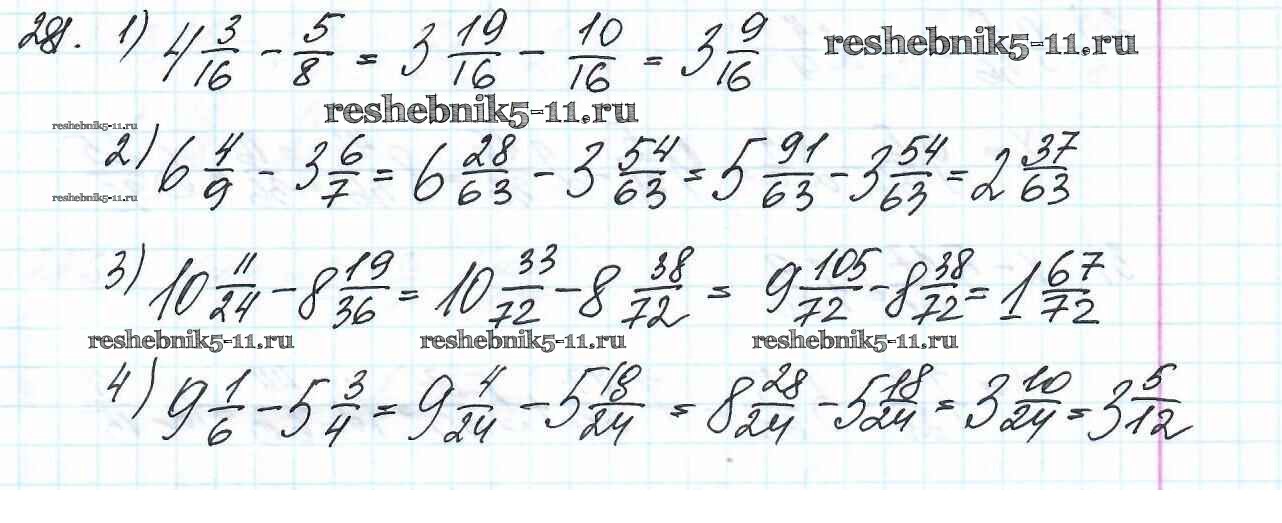 281. 1) 4 3/16 - 5/8 = 3 19/16 - 10/16 = 3 9/16
reshebnik5-11.ru
reshebnik5-11.ru
reshebnik5-11.ru
2) 6 4/9 - 3 6/7 = 6 28/63 - 3 54/63 = 5 91/63 - 3 54/63 = 2 37/63
reshebnik5-11.ru
3) 10 11/24 - 8 19/36 = 10 33/72 - 8 38/72 = 9 105/72 - 8 38/72 = 1 67/72
reshebnik5-11.ru reshebnik5-11.ru reshebnik5-11.ru
4) 9 1/6 - 5 3/4 = 9 4/24 - 5 18/24 = 8 28/24 - 5 18/24 = 3 10/24 = 3 5/12